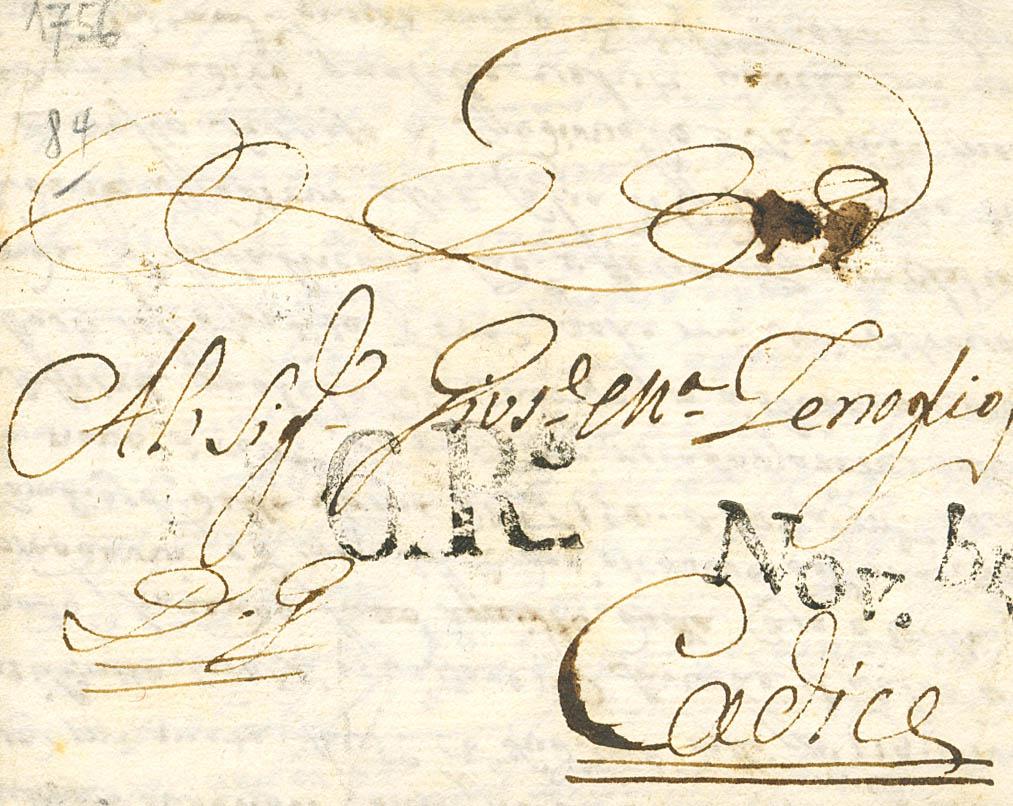 1756
84
Al Sigr. Giuse. Ma. Tenoglio
6.Rs.
Nov. br
D. G
Cadice